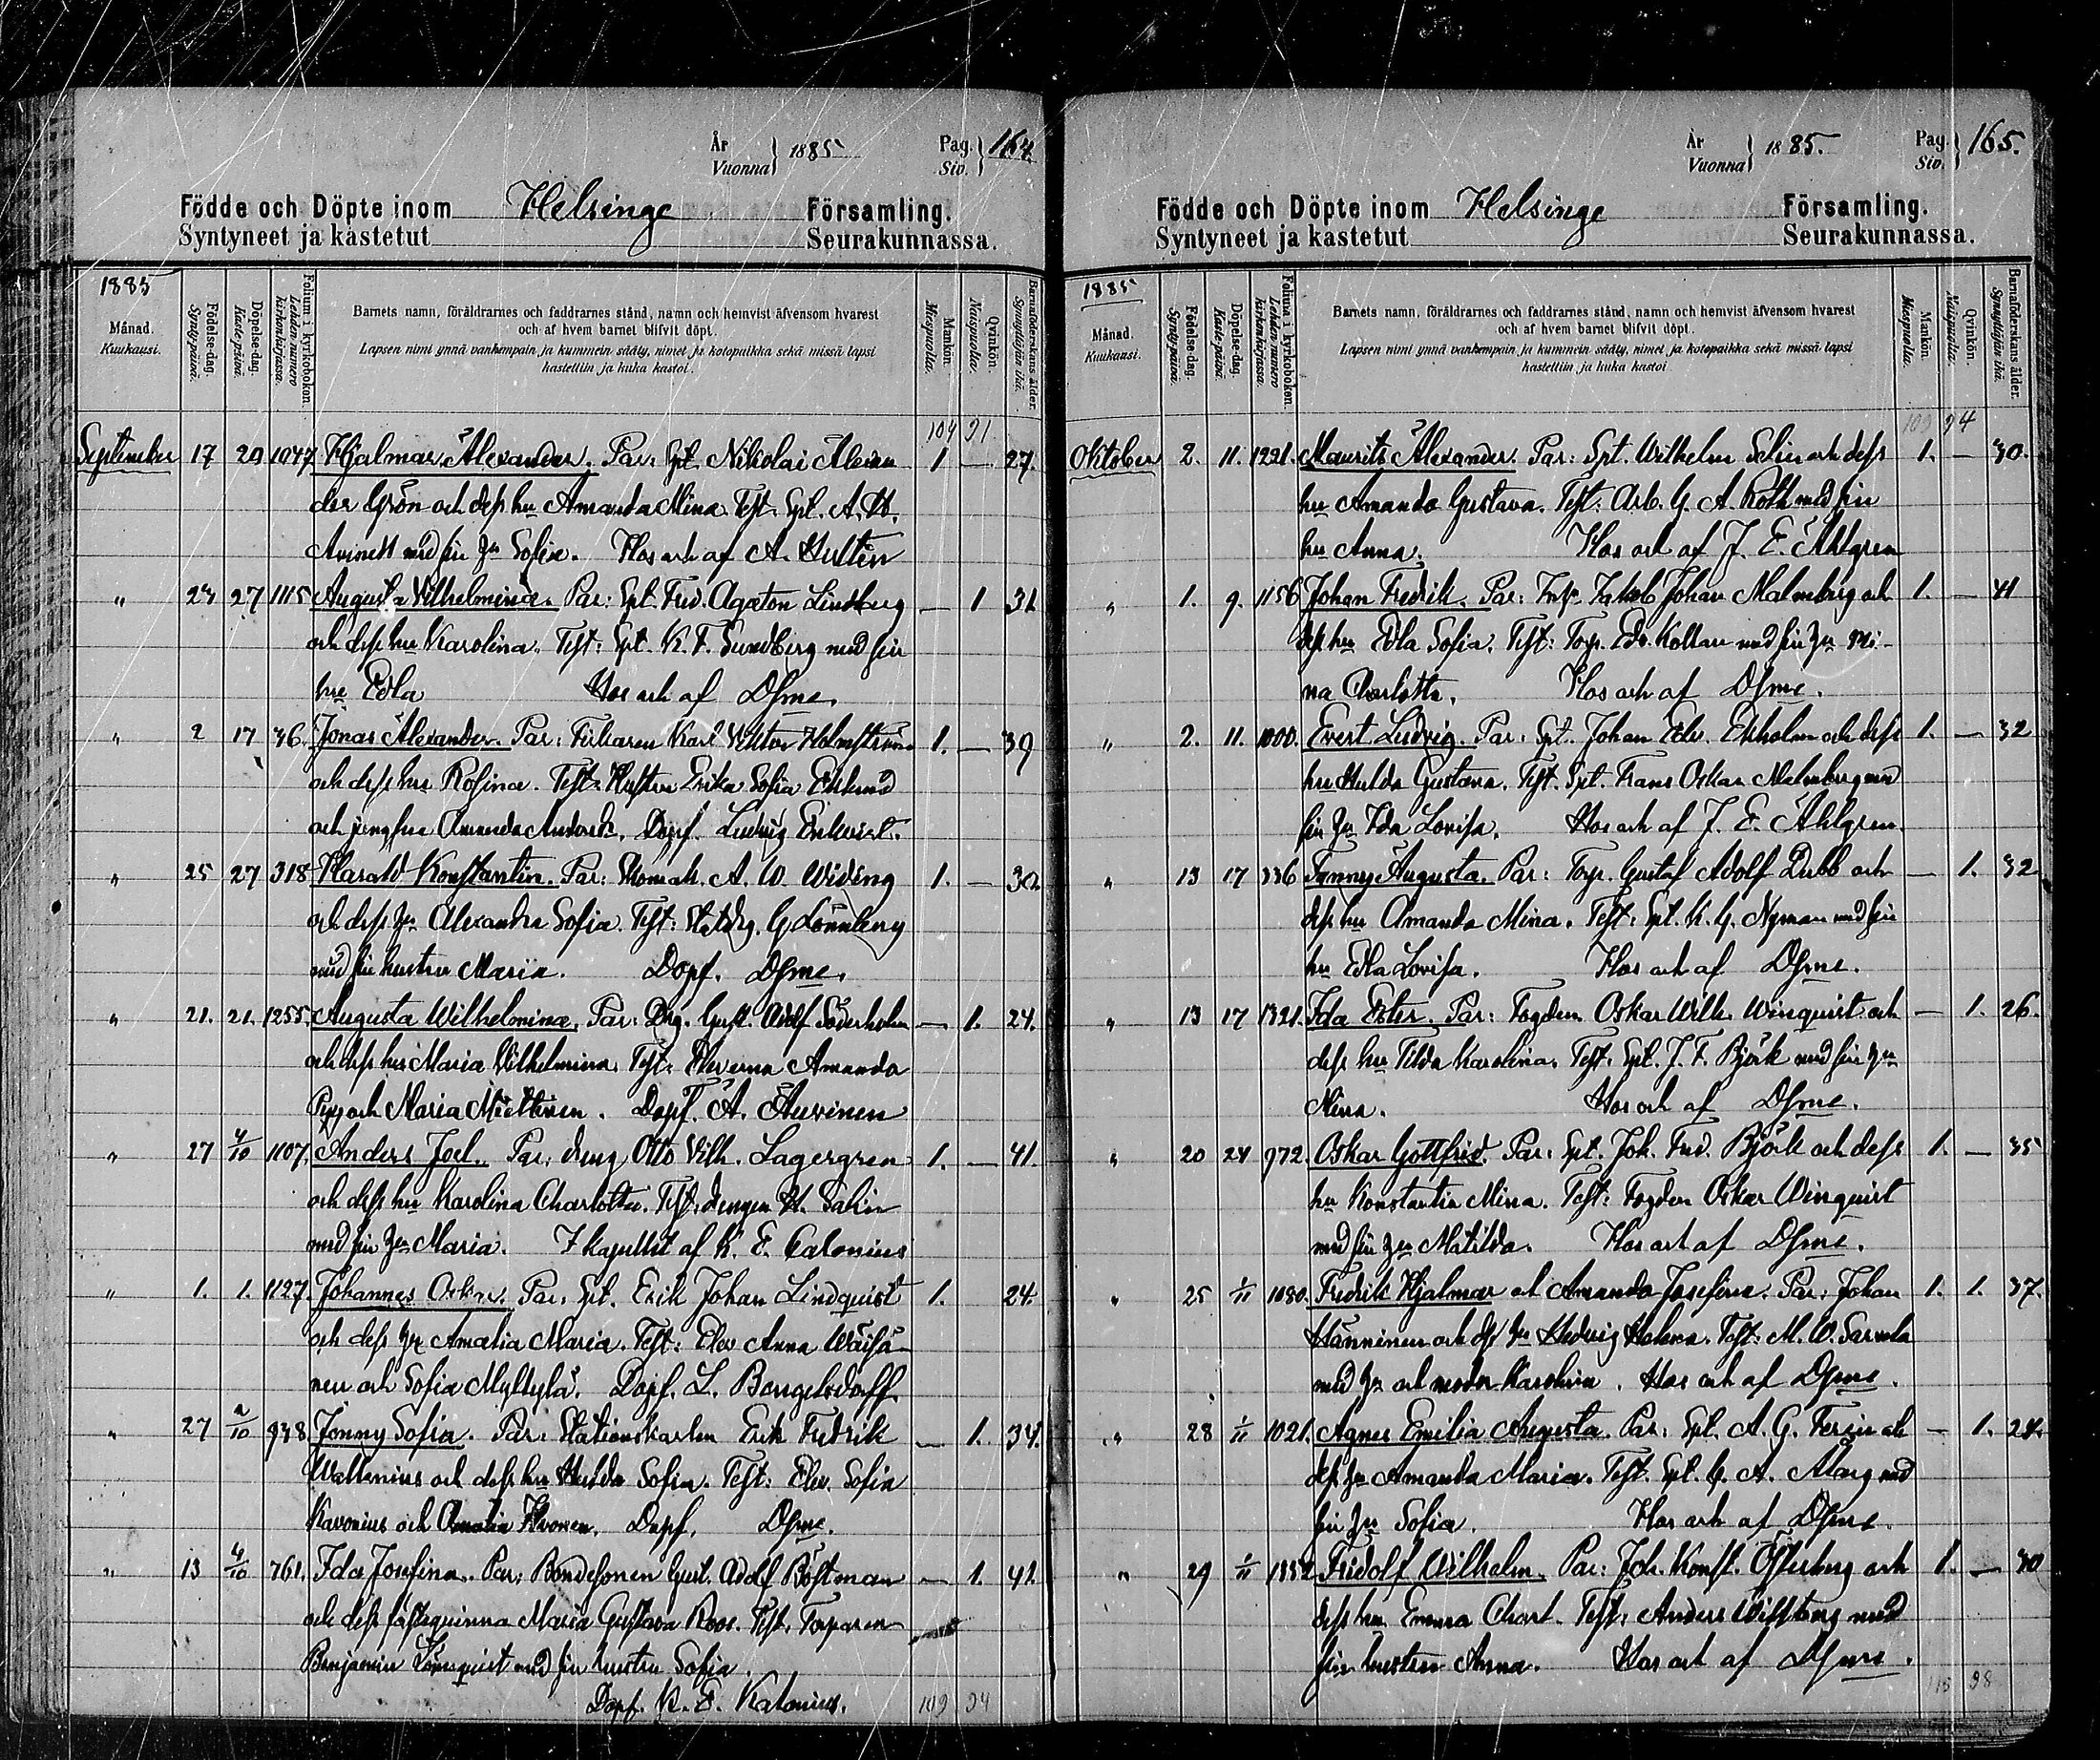 År
Vuonna
1885
Pag.
Siv.
164.
Födde och Döpte inom Helsinge Församling.
Syntyneet ja kastetut Seurakunnassa.
1885
Månad.
Kuukausi.
Födelse-dag.
Synty-päivä.
Döpelse-dag.
Kaste-päivä.
Folium i kyrkoboken.
Lehden numero kirkonkirjassa.
Barnets namn, föräldrarnes och faddrarnes stånd, namn och hemvist äfvensom hvarest
och af hvem barnet blifvit döpt.
Lapsen nimi ynnä vanhempain ja kummein sääty, nimet ja kotopaikka sekä missä lapsi
kastettiin ja kuka kastoi.
Mankön.
Miespuolia.
Qvinkön.
Naispuolia.
Barnaföderskans ålder.
Synnyttäjän ikä.
104 91
September 17 20 1047 Hjalmar Alexander. Par: Spt. Nikolai Alexan 1 — 27
der Grön och dess hu Amanda Mina. Test. Spt. A. W.
med sin hu Sofia. Hos och af A. Hultin
" 23 27 1115 Augusta Vilhelmina. Par: Spt. Fred. Agaton Lindberg — 1 31
och dess hu Karolina. Test: Spt. K. F. Sundberg med sin
hu Edla Hos och af Dsme.
" 2 17 36. Jonas Alexander. Par: Filharen Karl Viktor Holmström 1. — 39
och dess hu Rosina. Test: Hustru Erika Sofia Eklund
och jungfru Amanda Döpf. Ludvig Enkvist.
" 25 27 318 Harald Konstantin. Par: Skomak. A. W. Widing 1. — 30
och dess hu Alexandra Sofia. Test: Statdrg. G. Lönnberg
med sin hustru Maria. Döpf. Dsme.
" 21. 21. 1255. Augusta Wilhelmina. Par: Drg. Gust. Adolf Söderholm — 1. 24.
och dess hu Maria Vilhelmina. Test: Eleverna Amanda
och Maria Miettinen. Döpf. A. Auvinen
" 27 4/10 1107. Anders Joel. Par: dreng Otto Vilh. Lagergren 1. — 41.
och dess hu Karolina Charlotta. Test: drengen H. Salin
med sin hu Maria. I kapellet af K. E. Calonius
" 1. 1. 1127. Johannes Oskar. Par: Spt. Erik Johan Lindquist 1. 24.
och dess hu Amalia Maria. Test: Elev Anna Wäisä-
nen och Sofia Myllylä. Döpf. L. Bengelsdorff.
" 27 2/10 938. Jenny Sofia. Par: Stationskarlen Erik Fredrik — 1. 34.
Wallenius och dess hu Hulda Sofia. Test: Elev. Sofia
Kavonius och Amalia Ihvonen. Döpf. Dsme.
" 13 4/10 761. Ida Josefina. Par: Bondesonen Gust. Adolf Böstman — 1. 41.
och dess fästeqvinna Maria Gustava Roos. Test. Torparen
Benjamin Lönnquist med sin hustru Sofia.
Döpf. K. E. Kalonius.
109 94
År
Vuonna
1885.
Pag.
Siv.
165.
Födde och Döpte inom Helsinge Församling.
Syntyneet ja kastetut Seurakunnassa.
1885
Månad.
Kuukausi.
Födelse-dag.
Synty-päivä.
Döpelse-dag.
Kaste-päivä.
Folium i kyrkoboken.
Lehden numero kirkonkirjassa.
Barnets namn, föräldrarnes och faddrarnes stånd, namn och hemvist äfvensom hvarest
och af hvem barnet blifvit döpt.
Lapsen nimi ynnä vanhempain ja kummein sääty, nimet ja kotopaikka sekä missä lapsi
kastettiin ja kuka kastoi
Mankön.
Miespuolia.
Qvinkön.
Naispuolia.
Barnaföderskans ålder.
Synnyttäjän ikä.
109 94
Oktober 2. 11. 1221. Maurits Alexander. Par: Spt. Wilhelm Selin och dess 1. — 30.
hu Amanda Gustava. Test: Arb. G. A. Roth med sin
hu Anna. Hos och af J. E. Ahlgren
" 1. 9. 1156 Johan Fredrik. Par: Jakob Johan Malmberg och 1. — 41
dess hu Edla Sofia. Test: Torp. Edv. Kollan med sin hu Mi-
na Charlotta. Hos och af Dsme.
" 2. 11. 1000. Evert Ludvig. Par: Spt. Johan Edv. Ekholm och dess 1. — 32
hu Hulda Gustava. Test. Spt. Frans Oskar Malmberg med
sin hu Ida Lovisa. Hos och af J. E. Ahlgren.
" 13 17 336 Fanny Augusta. Par: Torp. Gustaf Adolf Dubb och — 1. 32
dess hu Amanda Mina. Test: Spt. K. G. Nyman med sin
hu Edla Lovisa. Hos och af Dsme.
" 13 17 1321. Ida Ester. Par: Fogden Oskar Wilh. Winquist och — 1. 26.
dess hu Tilda Karolina. Test: Spt. J. F. Björk med sin hu
Mina. Hos och af Dsme.
" 20 24 972. Oskar Gottfrid. Par: Spt. Joh. Fred. Björk och dess 1. — 35
hu Konstantia Mina. Test: Fogden Oskar Winquist
med sin hu Matilda. Hos och af Dsme.
" 25 1/11 1080. Fredrik Hjalmar och Amanda Josefina. Par: Johan 1. 1. 37.
Hänninen och dess hu Hedvig Helena. Test: M. W. Sarvela
med hu och moder Karolina. Hos och af Dsme.
" 28 1/11 1021. Agnes Emilia Augusta. Par: Spt. A. G. Ferzin och — 1. 24.
dess hu Amanda Maria. Test. Spt. G. A. Åberg med
sin hu Sofia. Hos och af Dsme.
" 29 1/11 1352 Fridolf Wilhelm. Par: Joh. Konst. Österberg och 1. — 30
dess hu Emma Charl. Test: Anders Wilsberg med
sin hustru Anna. Hos och af Dsme.
98